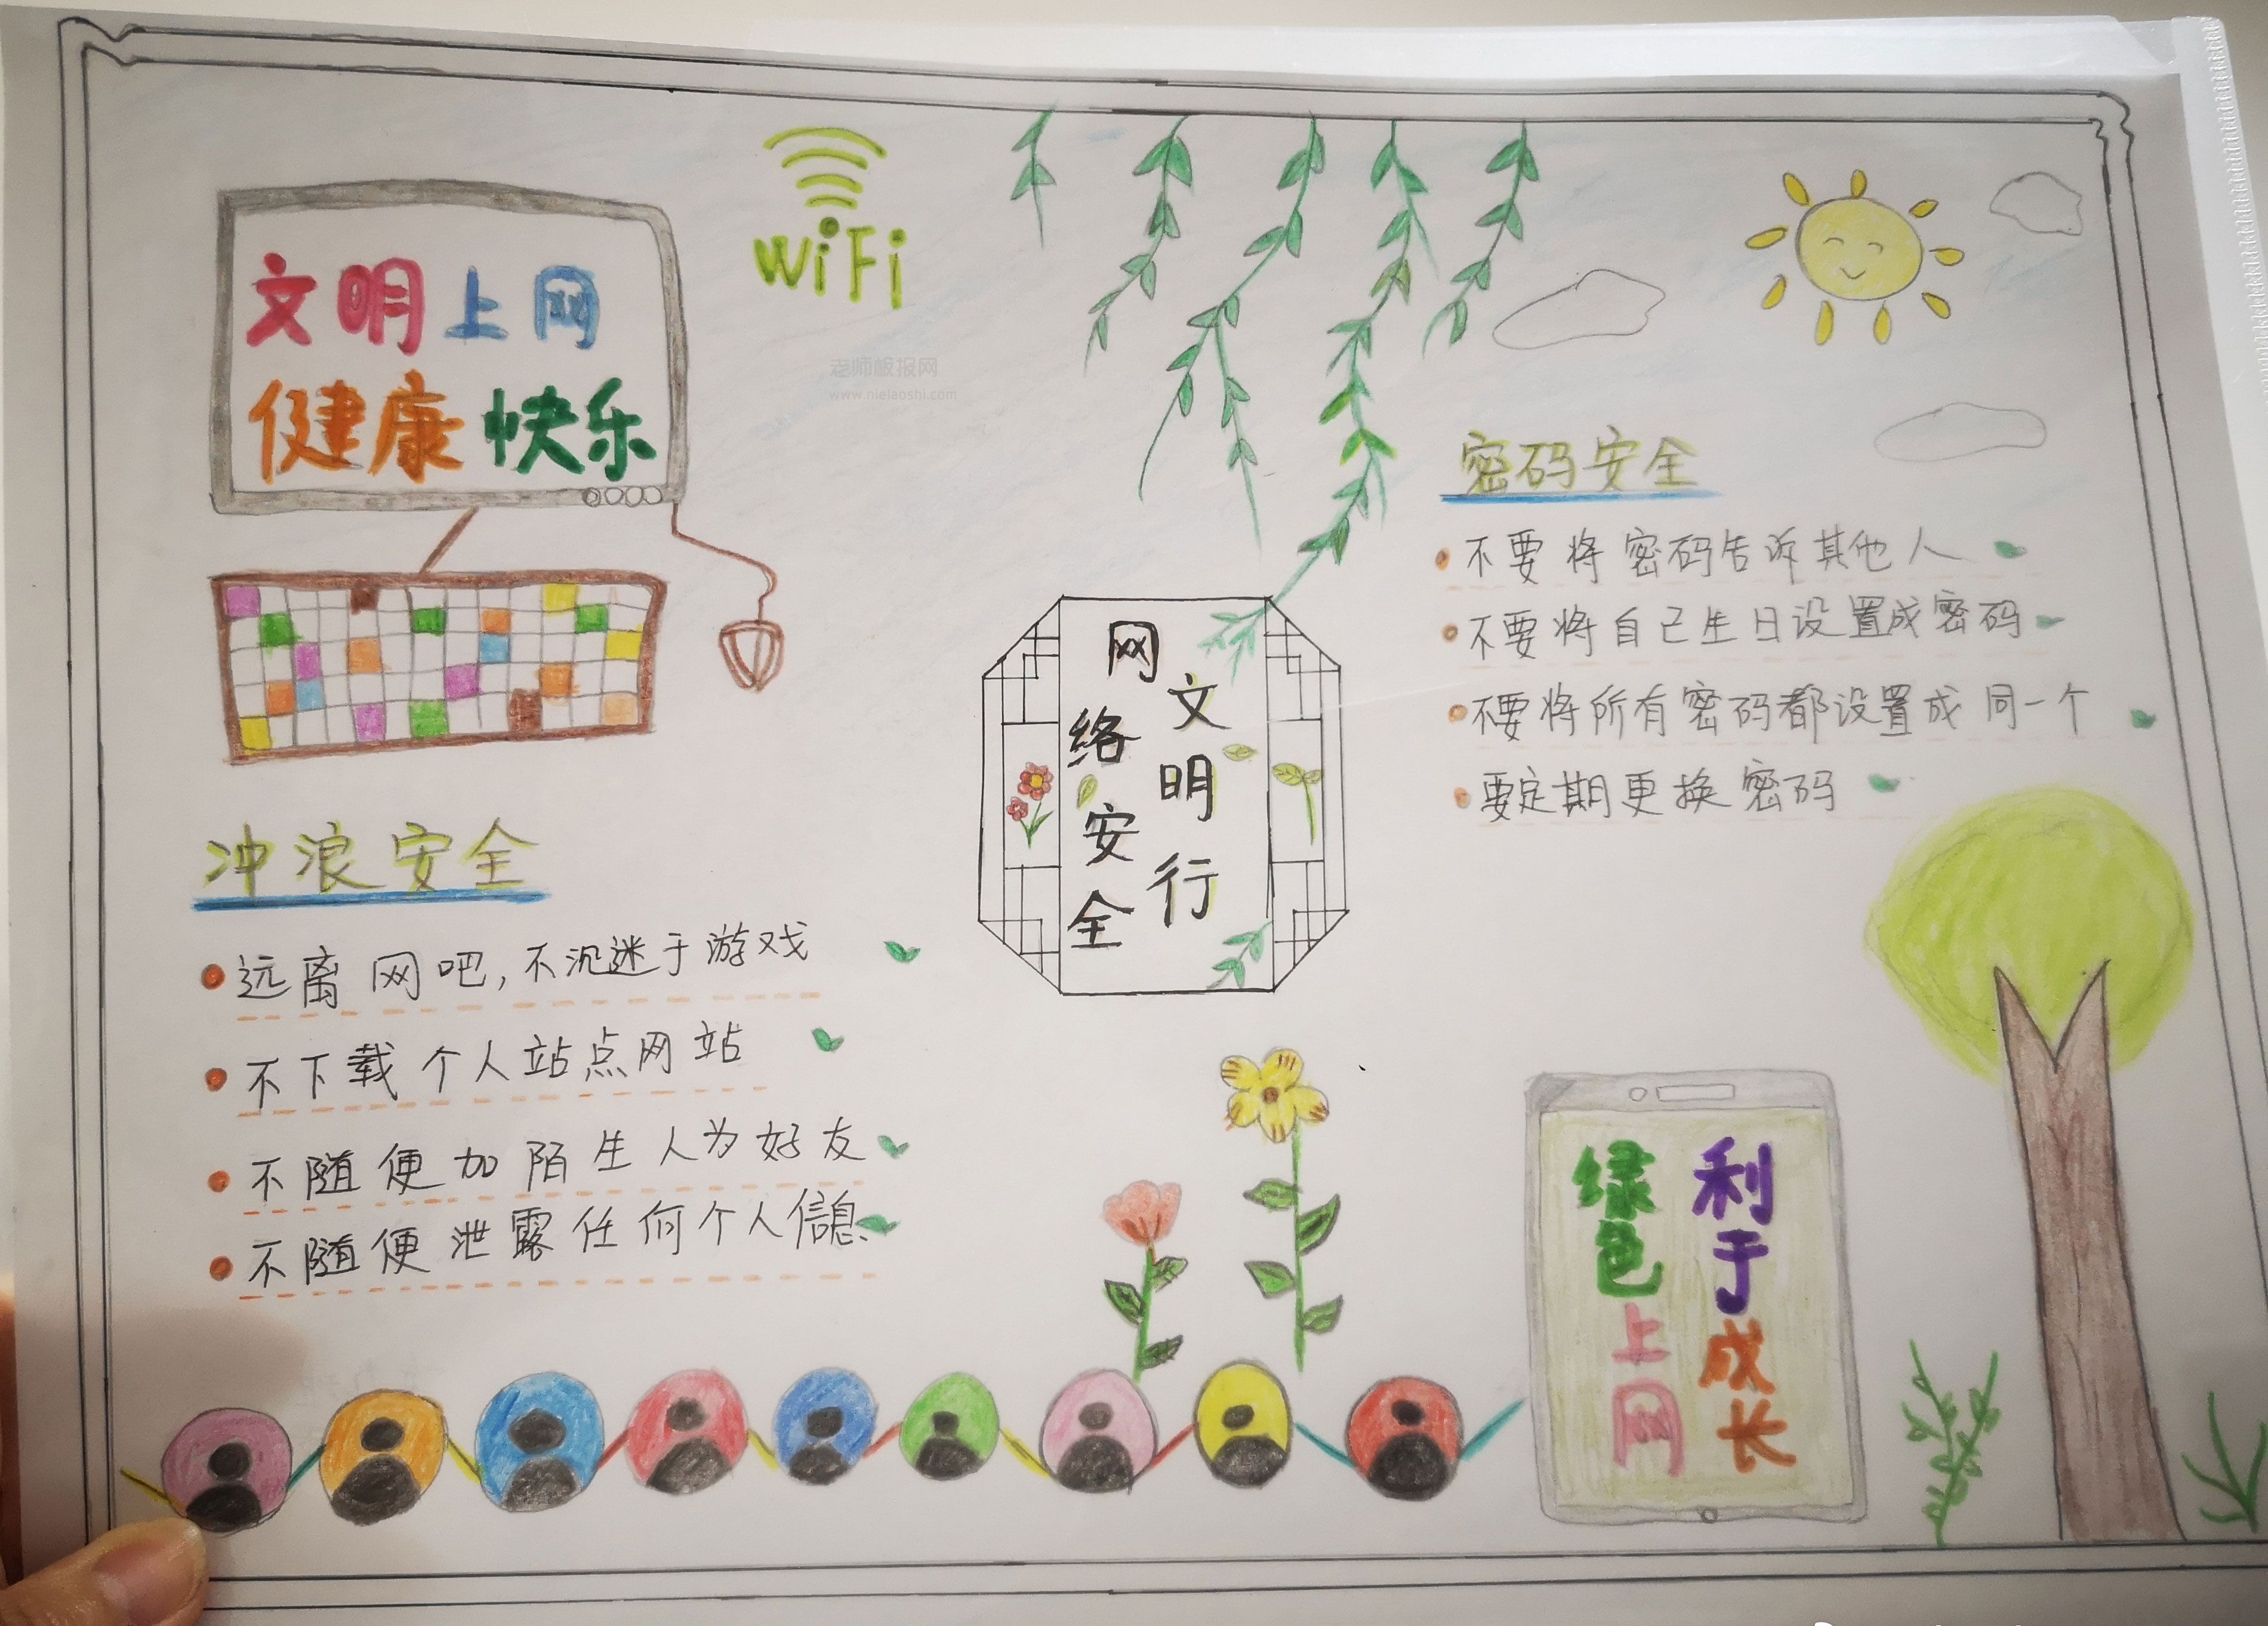 文明上网
健康快乐
WiFi
老师板报网
www.nielaoshi.com
密码安全
不要将密码告诉其他人
不要将自己生日设置成密码
不要将所有密码都设置成同一个
要定期更换密码
网络安全
文明行
冲浪安全
远离网吧,不沉迷于游戏
不下载个人站点网站
不随便加陌生人为好友
不随便泄露任何个人信息.
绿色上网
利于成长